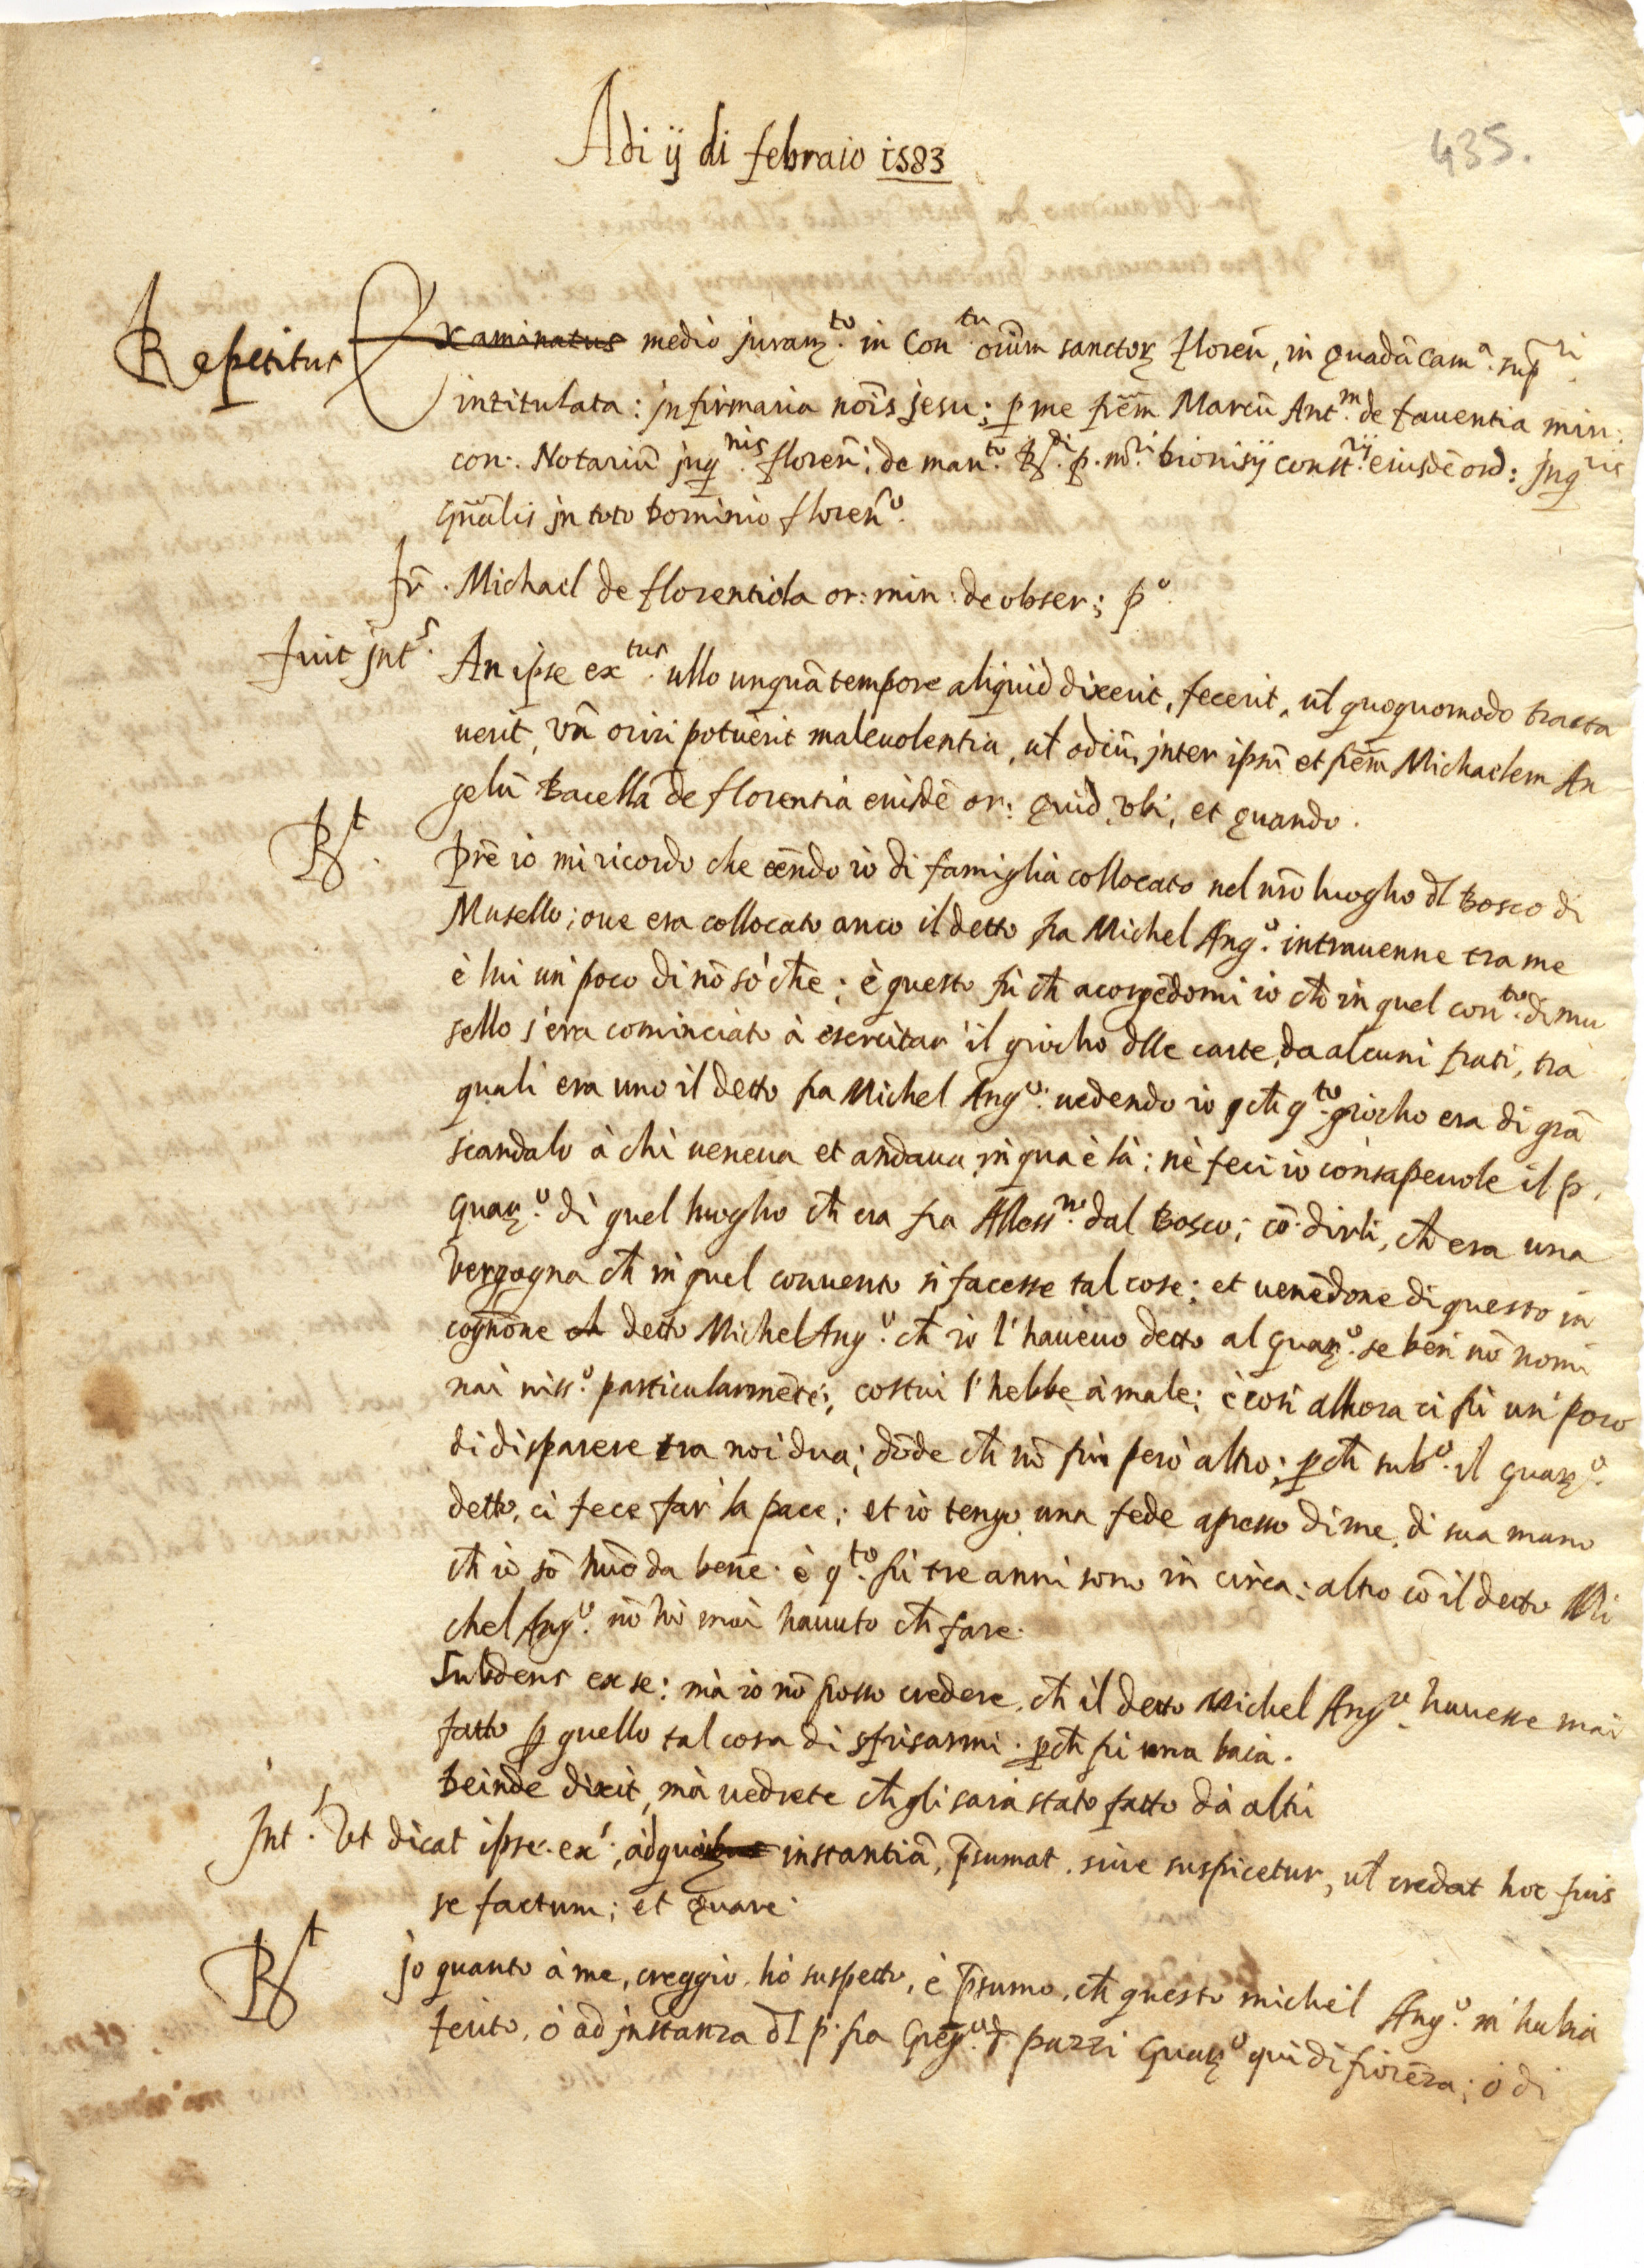 435.
Adi ij di febraio 1583
Repetitus Examinatus medio juram.to in Con.tu oiũm sanctor̃ floreñ, in quadã cam.a sup.ri
intitulata: jnfirmaria nõis jesu; p me frẽm Marcũ Ant.m de faventia min:
con: Notariũ jnq.nis floreñ: de man.to R.di p. m.ri Dionisij const.rij eiusdẽ ord: jnq.ris
gñalis jn toto Dominio floreñ.o
fr̃. Michael de florentiola or: min: de obser: p.o
fuit jnt.s An ipse ex.tus ullo unquã tempore aliquid dixerit, fecerit, ul̃ quoquomodo tracta
uerit, vñ oriri potuerit maleuolentia, ul̃ odiũ, jnter ipsũ et frẽm Michaelem An
gelũ Bacellã de florentia eiusdẽ or: quid, vbi, et quando.
R.t Prẽ io mi ricordo che eẽndo io di famiglia collocato nel nr̃o luogho dl̃ Bosco di
Musello; oue era collocato anco il detto fra Michel Ang.o intrauenne tra me
è lui un' poco di nõ sò ch̃e; è questo fù ch̃ acorgẽdomi io ch̃ in quel con.to di mu
sello s'era cominciato à esercitar' il giocho dlle carte, da alcuni frati, tra
quali era uno il detto fra Michel Ang.o: uedendo io ch̃ q.to giocho era di grã
scandalo à chi ueneua et andaua in qua è là; nè feci io consapeuole il p.
guar.o di quel luogho ch̃ era fra Aless.ro dal Bosco; cõ dirli, ch̃ era una
vergogna ch̃ in quel conuento si facesse tal cose; et uenẽdone di questo in
cognõne detto Michel Ang.o ch̃ io l'haueuo detto al guar.o se ben nõ nomi
nai niss.o particularmẽte; costui l'hebbe à male; è così allhora ci fù un' poco
di disparere tra noi dua; dõde ch̃ nõ fu però altro; pch̃ sub.o il guar.o
detto, ci fece far' la pace; et io tengo una fede apresso di me, di sua mano
ch̃ io sõ huõ da bene. è q.to fù tre anni sono in circa; altro cõ il detto Mi
chel Ang.o nõ hò mai hauuto ch̃ fare.
Subdens ex se: mà io nõ posso credere, ch̃ il detto Michel Ang.o hauesse mai
fatto p quello tal cosa di sfrisarmi. pch̃ fù una baia.
Deinde dixit, mà uedrete ch̃ gli sarà stato fatto dà altri
Jnt.s Vt dicat ipse ex.s, ad instantiã, p̃sumat, siue suspicetur, ul̃ credat hoc fuis
se factum; et quare.
R.t jo quanto à me, creggio, hò suspetto, è p̃sumo, ch̃ questo michel Ang.o m'habia
ferito, ò ad jnstanza dl̃ p. fra Greg.o d' pazzi Guar.o qui di fiorẽza; ò di